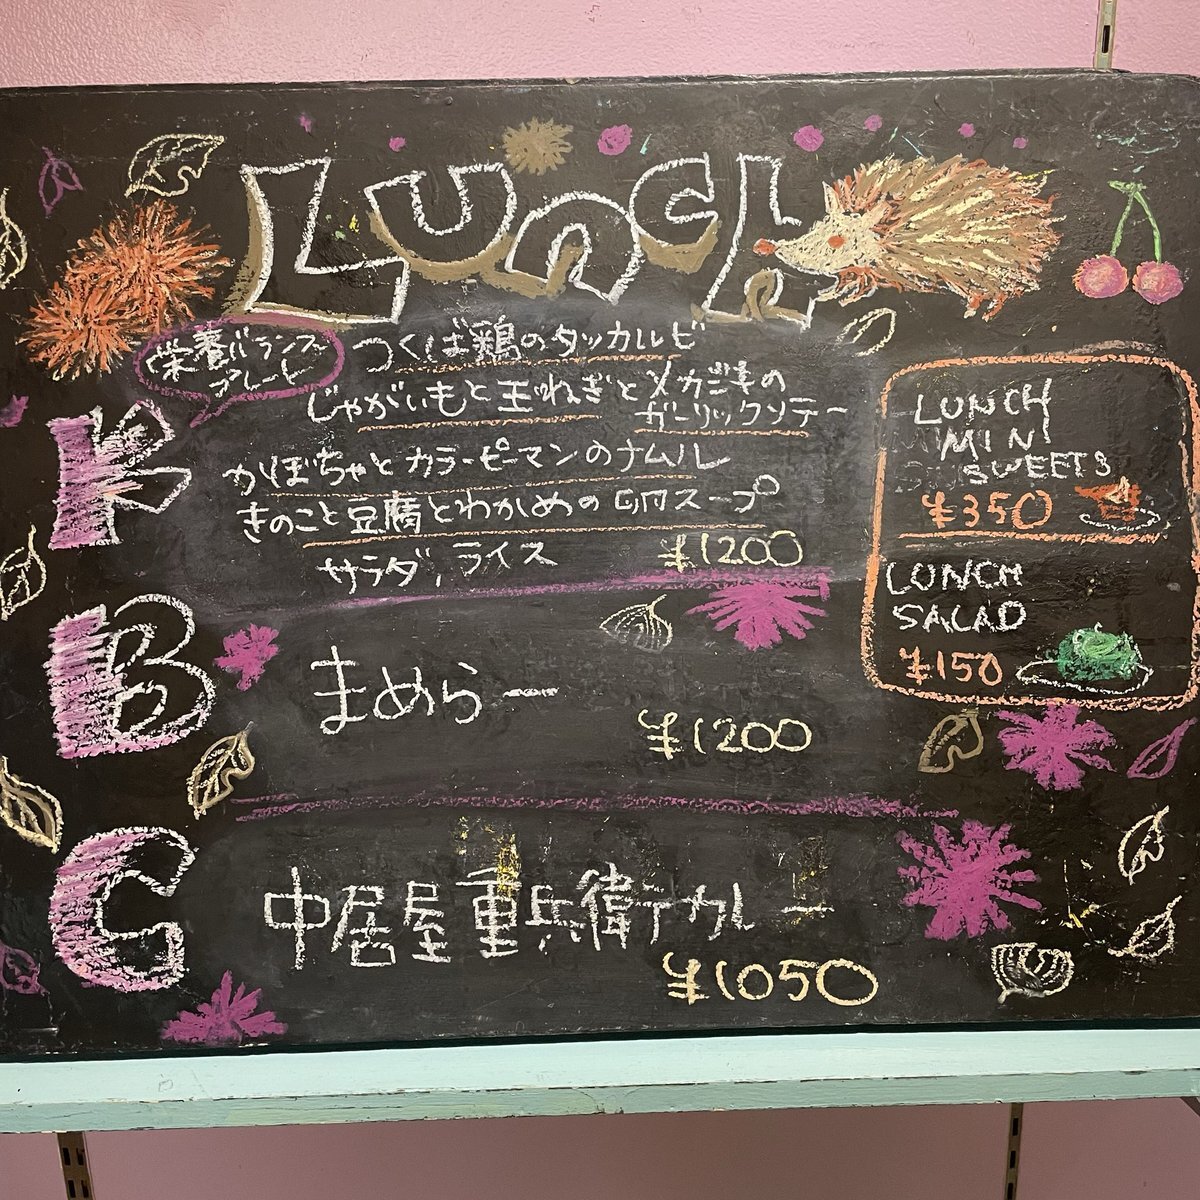 Lunch
栄養バランス
プレート
つくば鶏のタッカルビ
じゃがいもと玉ねぎとメカジキの
ガーリックソテー
かぼちゃとカラーピーマンのナムル
きのこと豆腐とわかめの卵スープ
サラダ, ライス ¥1200
B
まめらー
¥1200
C
中居屋重兵衛カレー
¥1050
LUNCH
MINI
SWEETS
¥350
LUNCH
SALAD
¥150